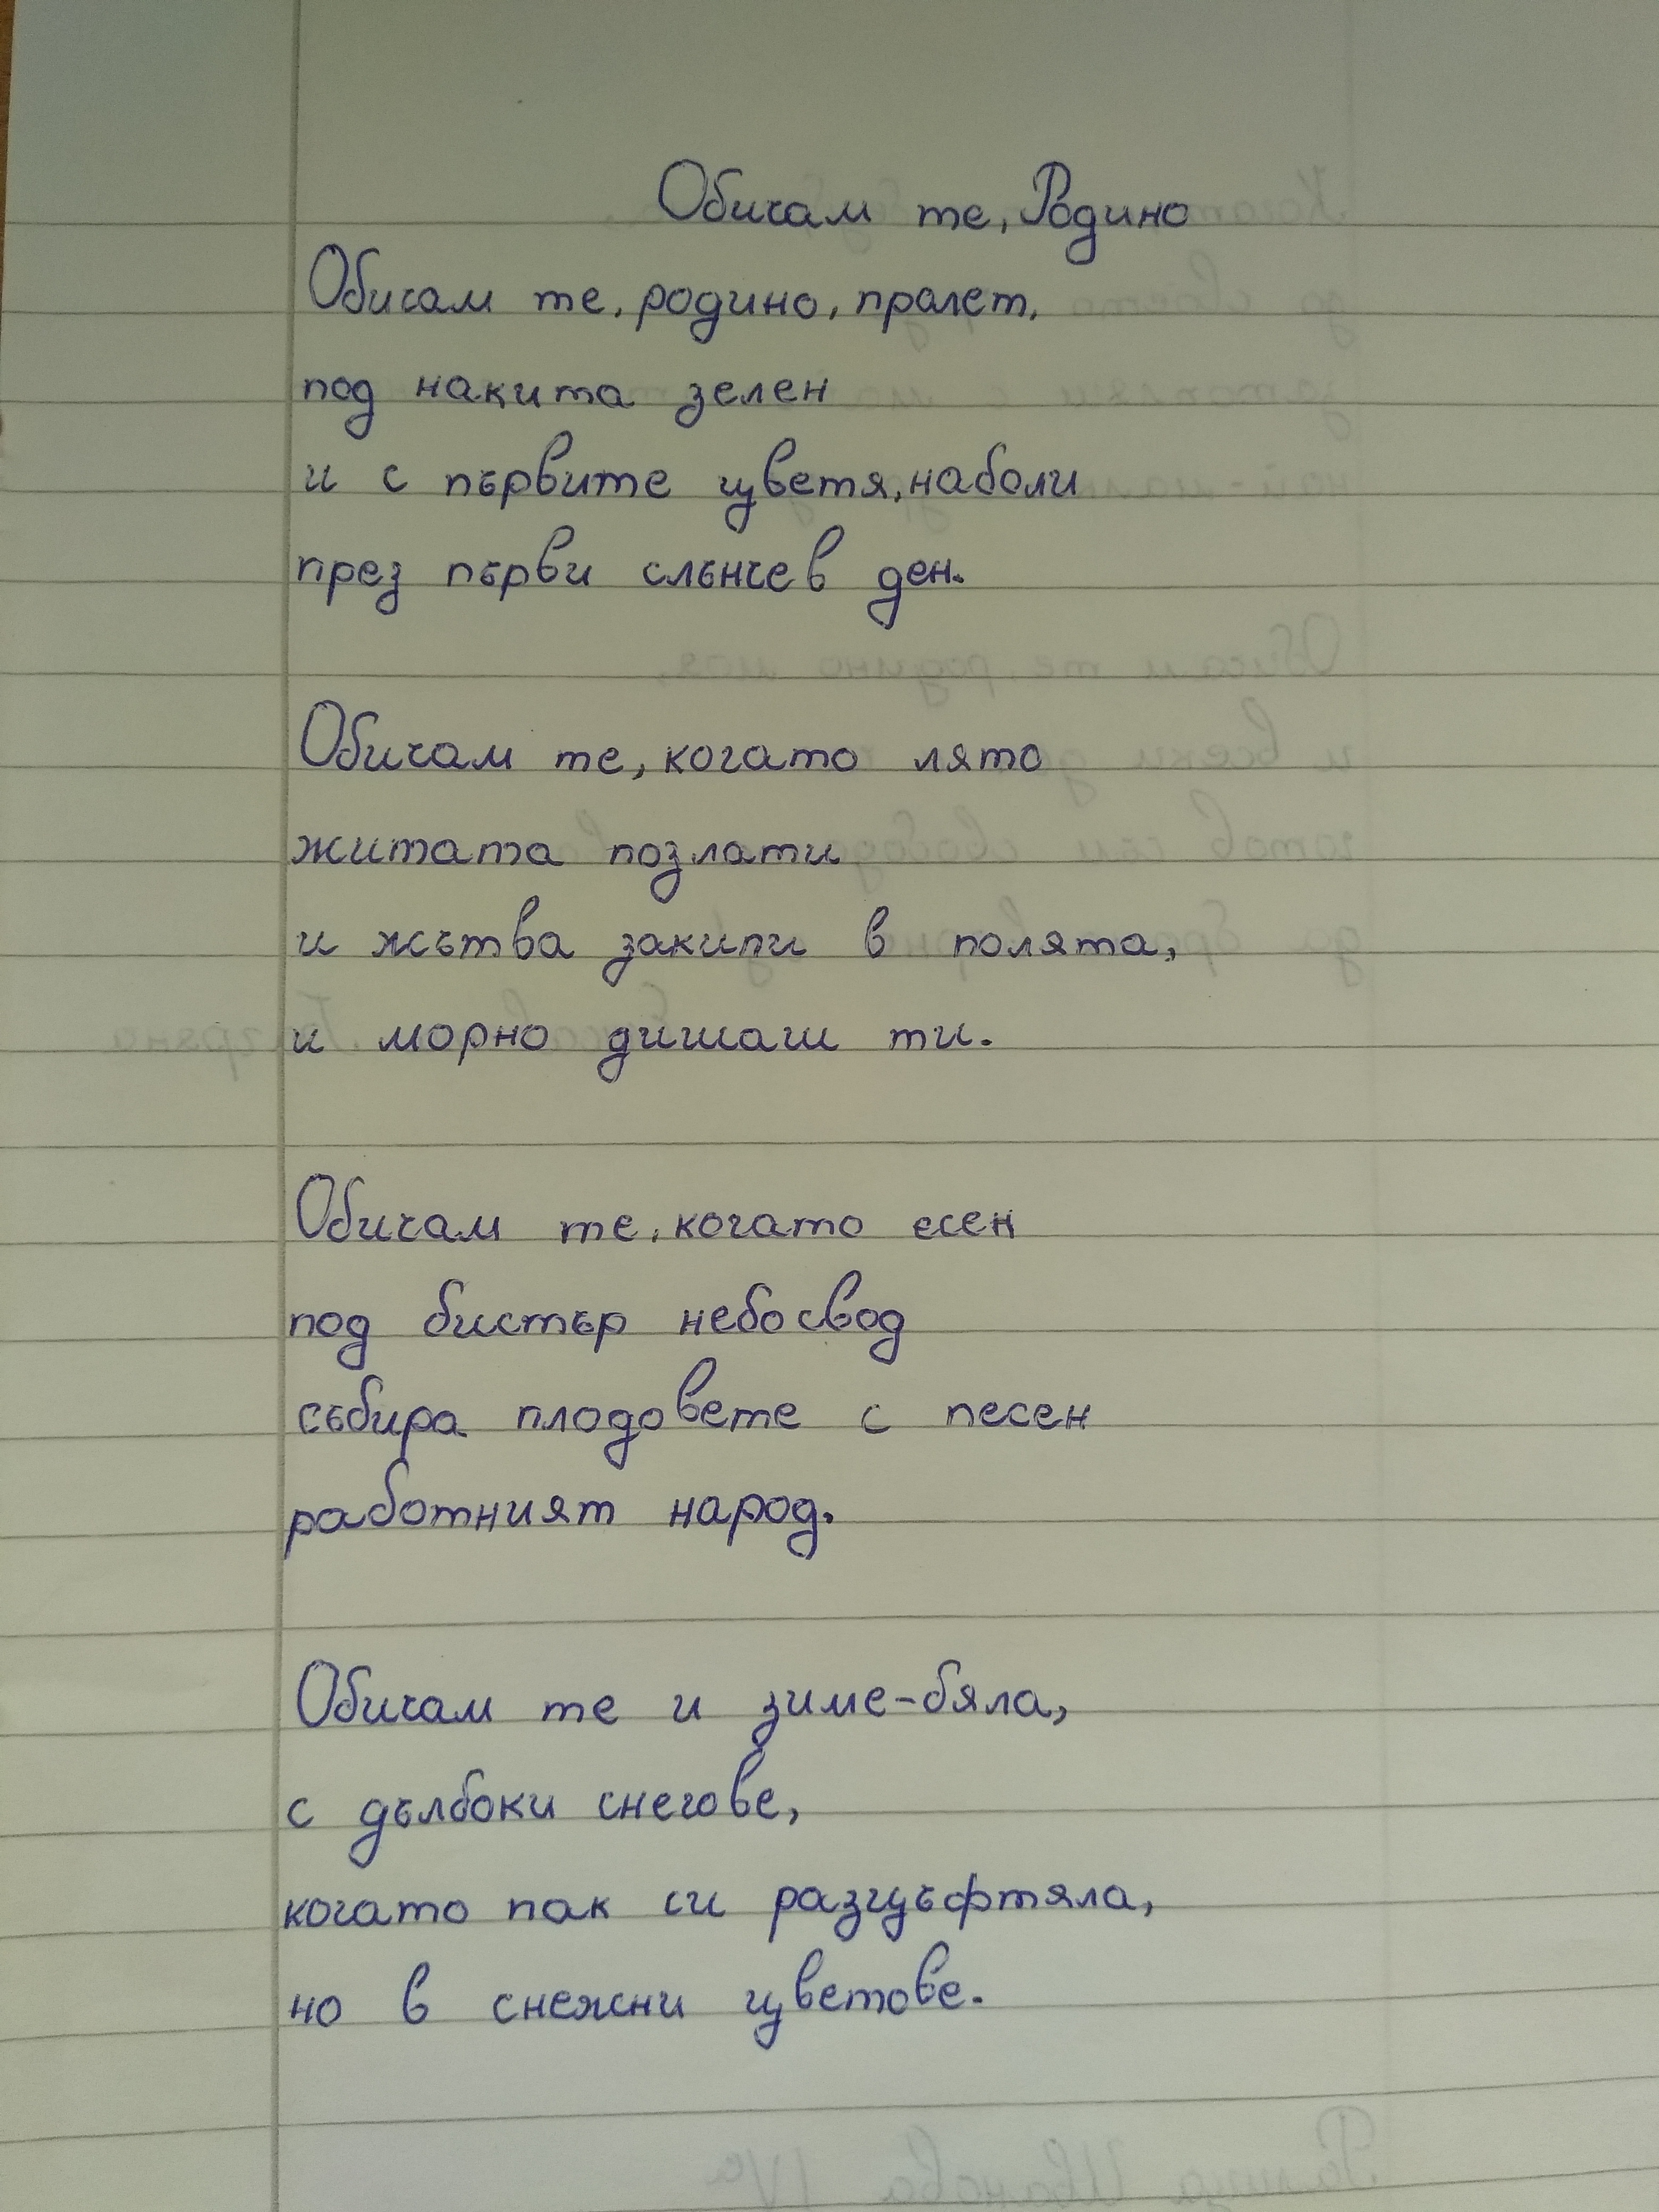 Обичам те, Родино
Обичам те, родино, пролет,
под накита зелен
и с първите цветя, наболи
през първи слънчев ден.
Обичам те, когато лято
житата позлати
и жътва закипи в полята,
и морно дишаш ти.
Обичам те, когато есен
под бистър небосвод
събира плодовете с песен
работният народ.
Обичам те и зиме-бяла,
с дълбоки снегове,
когато пак си разцъфтяла,
но в снежни цветове.